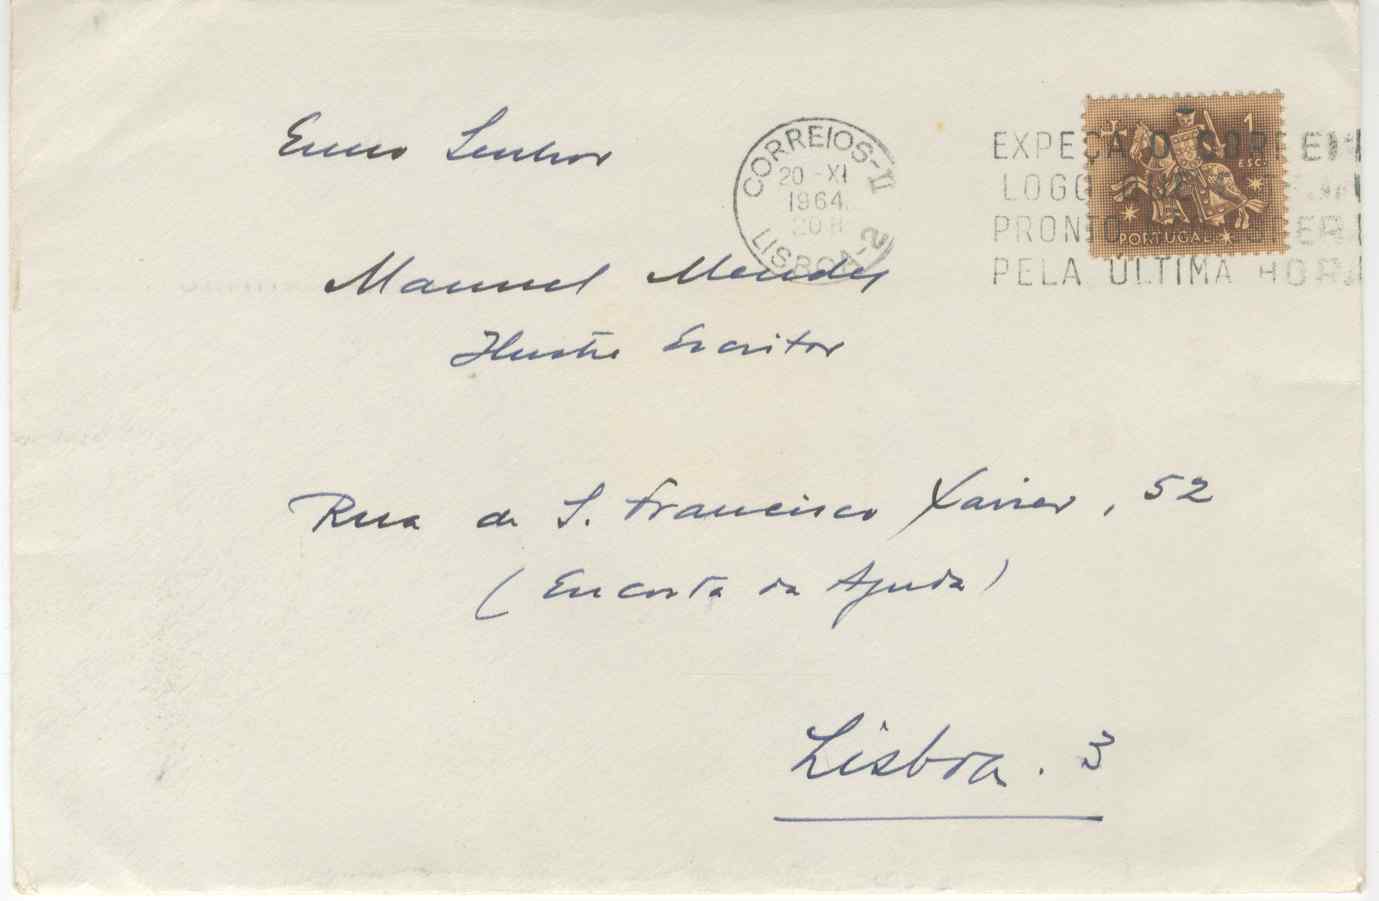 Exmo Senhor
Manuel Mendes
Ilustre Escritor
Rua de S. Francisco Xavier, 52
(Encosta da Ajuda)
Lisboa. 3
CORREIOS-II
20-XI
1964
20 H
LISBOA-2
EXPEÇA O CORREIO
LOGO QUE
PRONTO
PELA ÚLTIMA HORA
1
ESC.
PORTUGAL